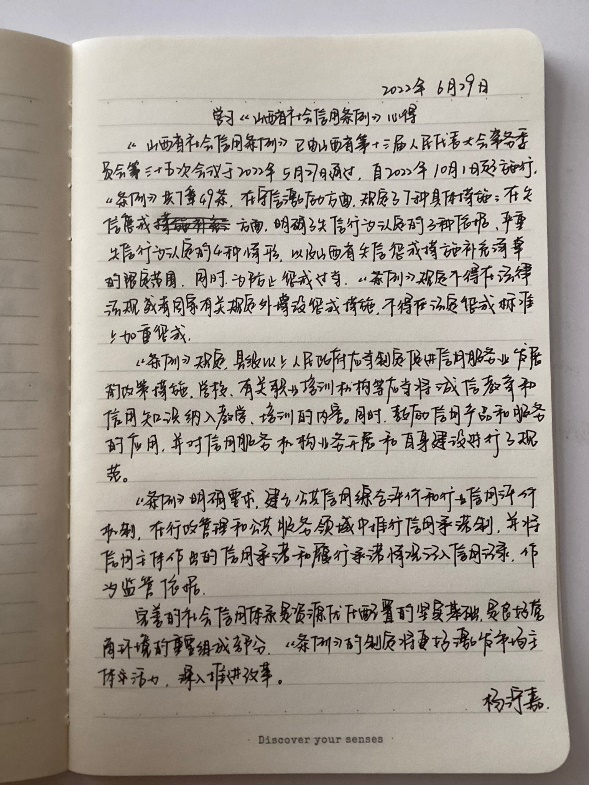 2022年 6月29日
学习《山西省社会信用条例》心得
《山西省社会信用条例》已由山西省第十三届人民代表大会常务委
员会第三十五次会议于2022年5月27日通过，自2022年10月1日起施行。
《条例》共7章49条，在守信激励方面，规定了7种具体措施；在失
信惩戒方面，明确了失信行为认定的3种依据、严重
失信行为认定的4种情形，以及山西省失信惩戒措施补充清单
的设定范围，同时，为防止惩戒过当，《条例》规定不得在法律
法规或者国家有关规定外增设惩戒措施，不得在法定惩戒标准
上加重惩戒。
《条例》规定，县级以上人民政府应当制定促进信用服务业发展
的政策措施，学校、有关职业培训机构等应当将诚信教育和
信用知识纳入教学、培训的内容。同时，鼓励信用产品和服务
的应用，并对信用服务机构业务开展和自身建设进行了规
范。
《条例》明确要求，建立公共信用综合评价和行业信用评价
机制，在行政管理和公共服务领域中推行信用承诺制，并将
信用主体作出的信用承诺和履行承诺情况记入信用记录，作
为监管依据。
完善的社会信用体系是资源优化配置的坚实基础，是良好营
商环境的重要组成部分，《条例》的制定将更好激发市场主
体活力，深入推进改革。
Discover your senses